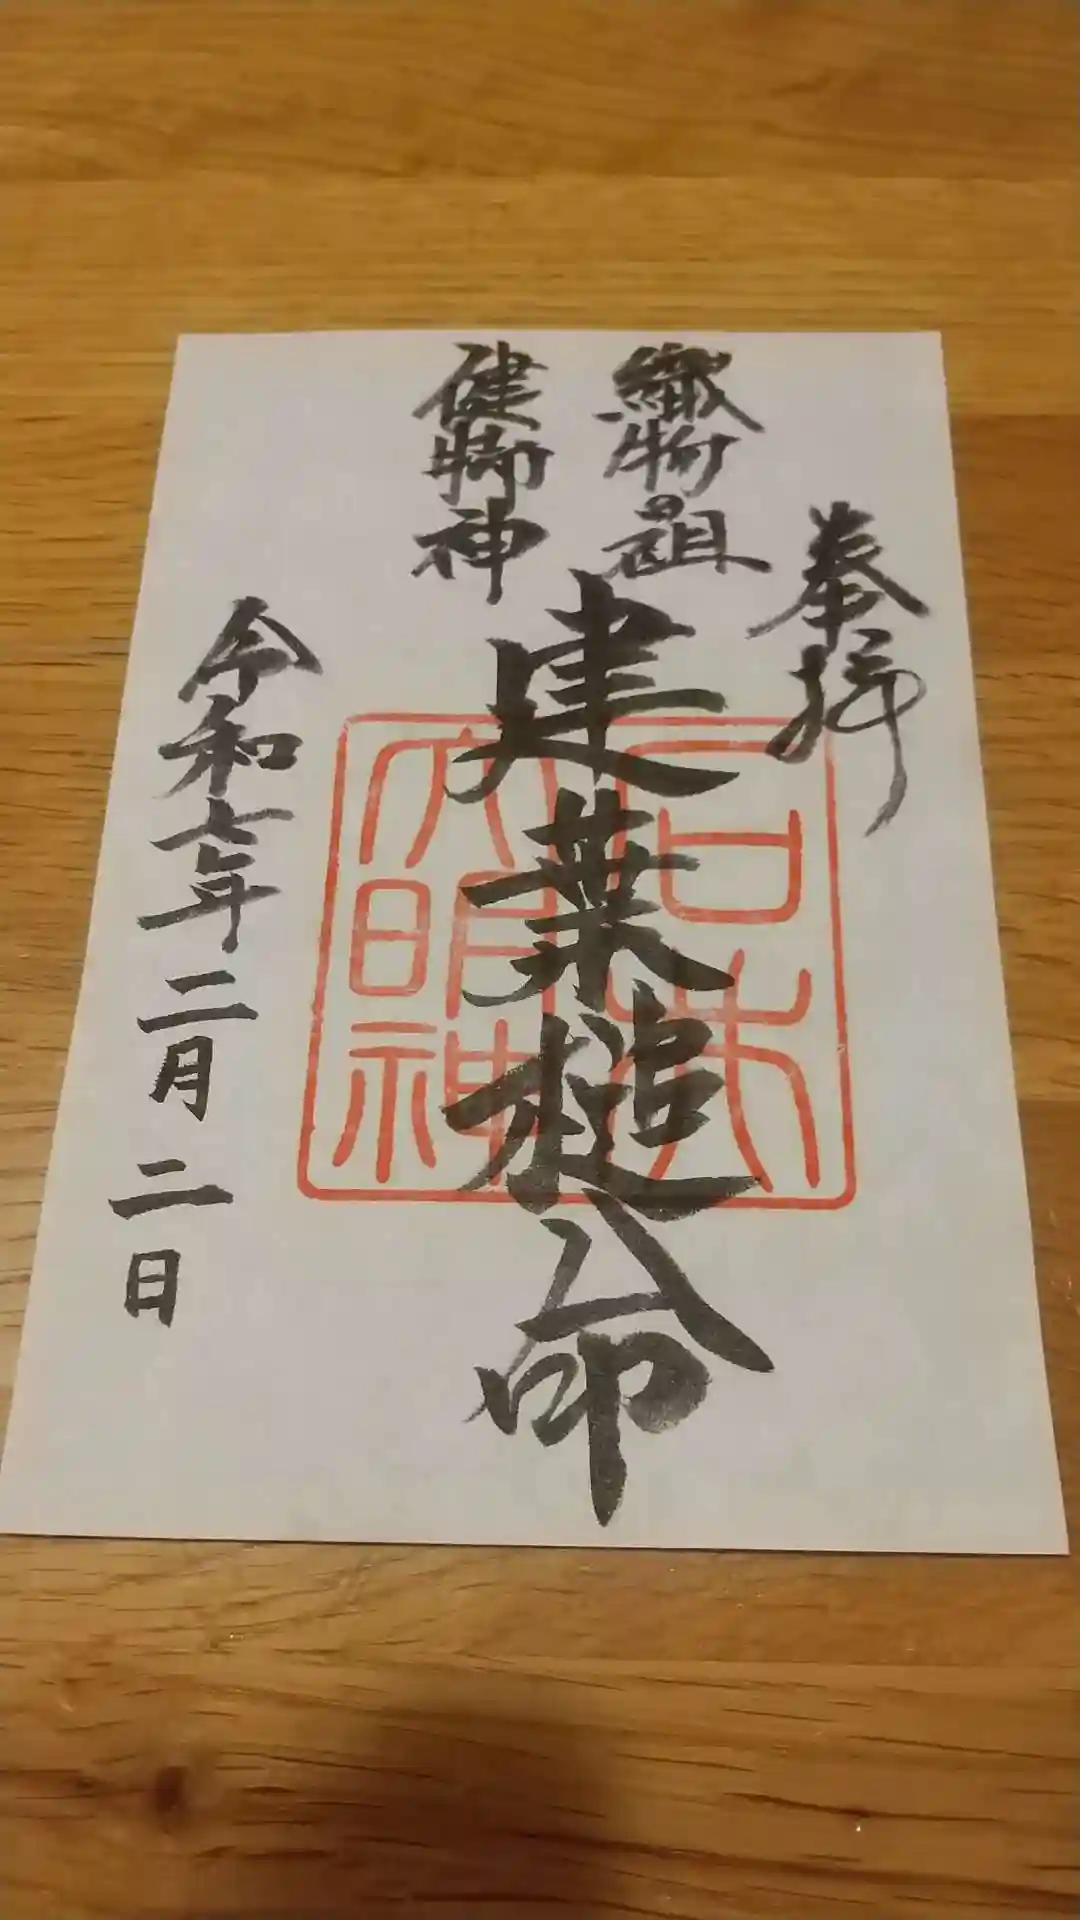 奉拝
織物の祖
健御神
建葉槌命
大明神
令和七年二月二日